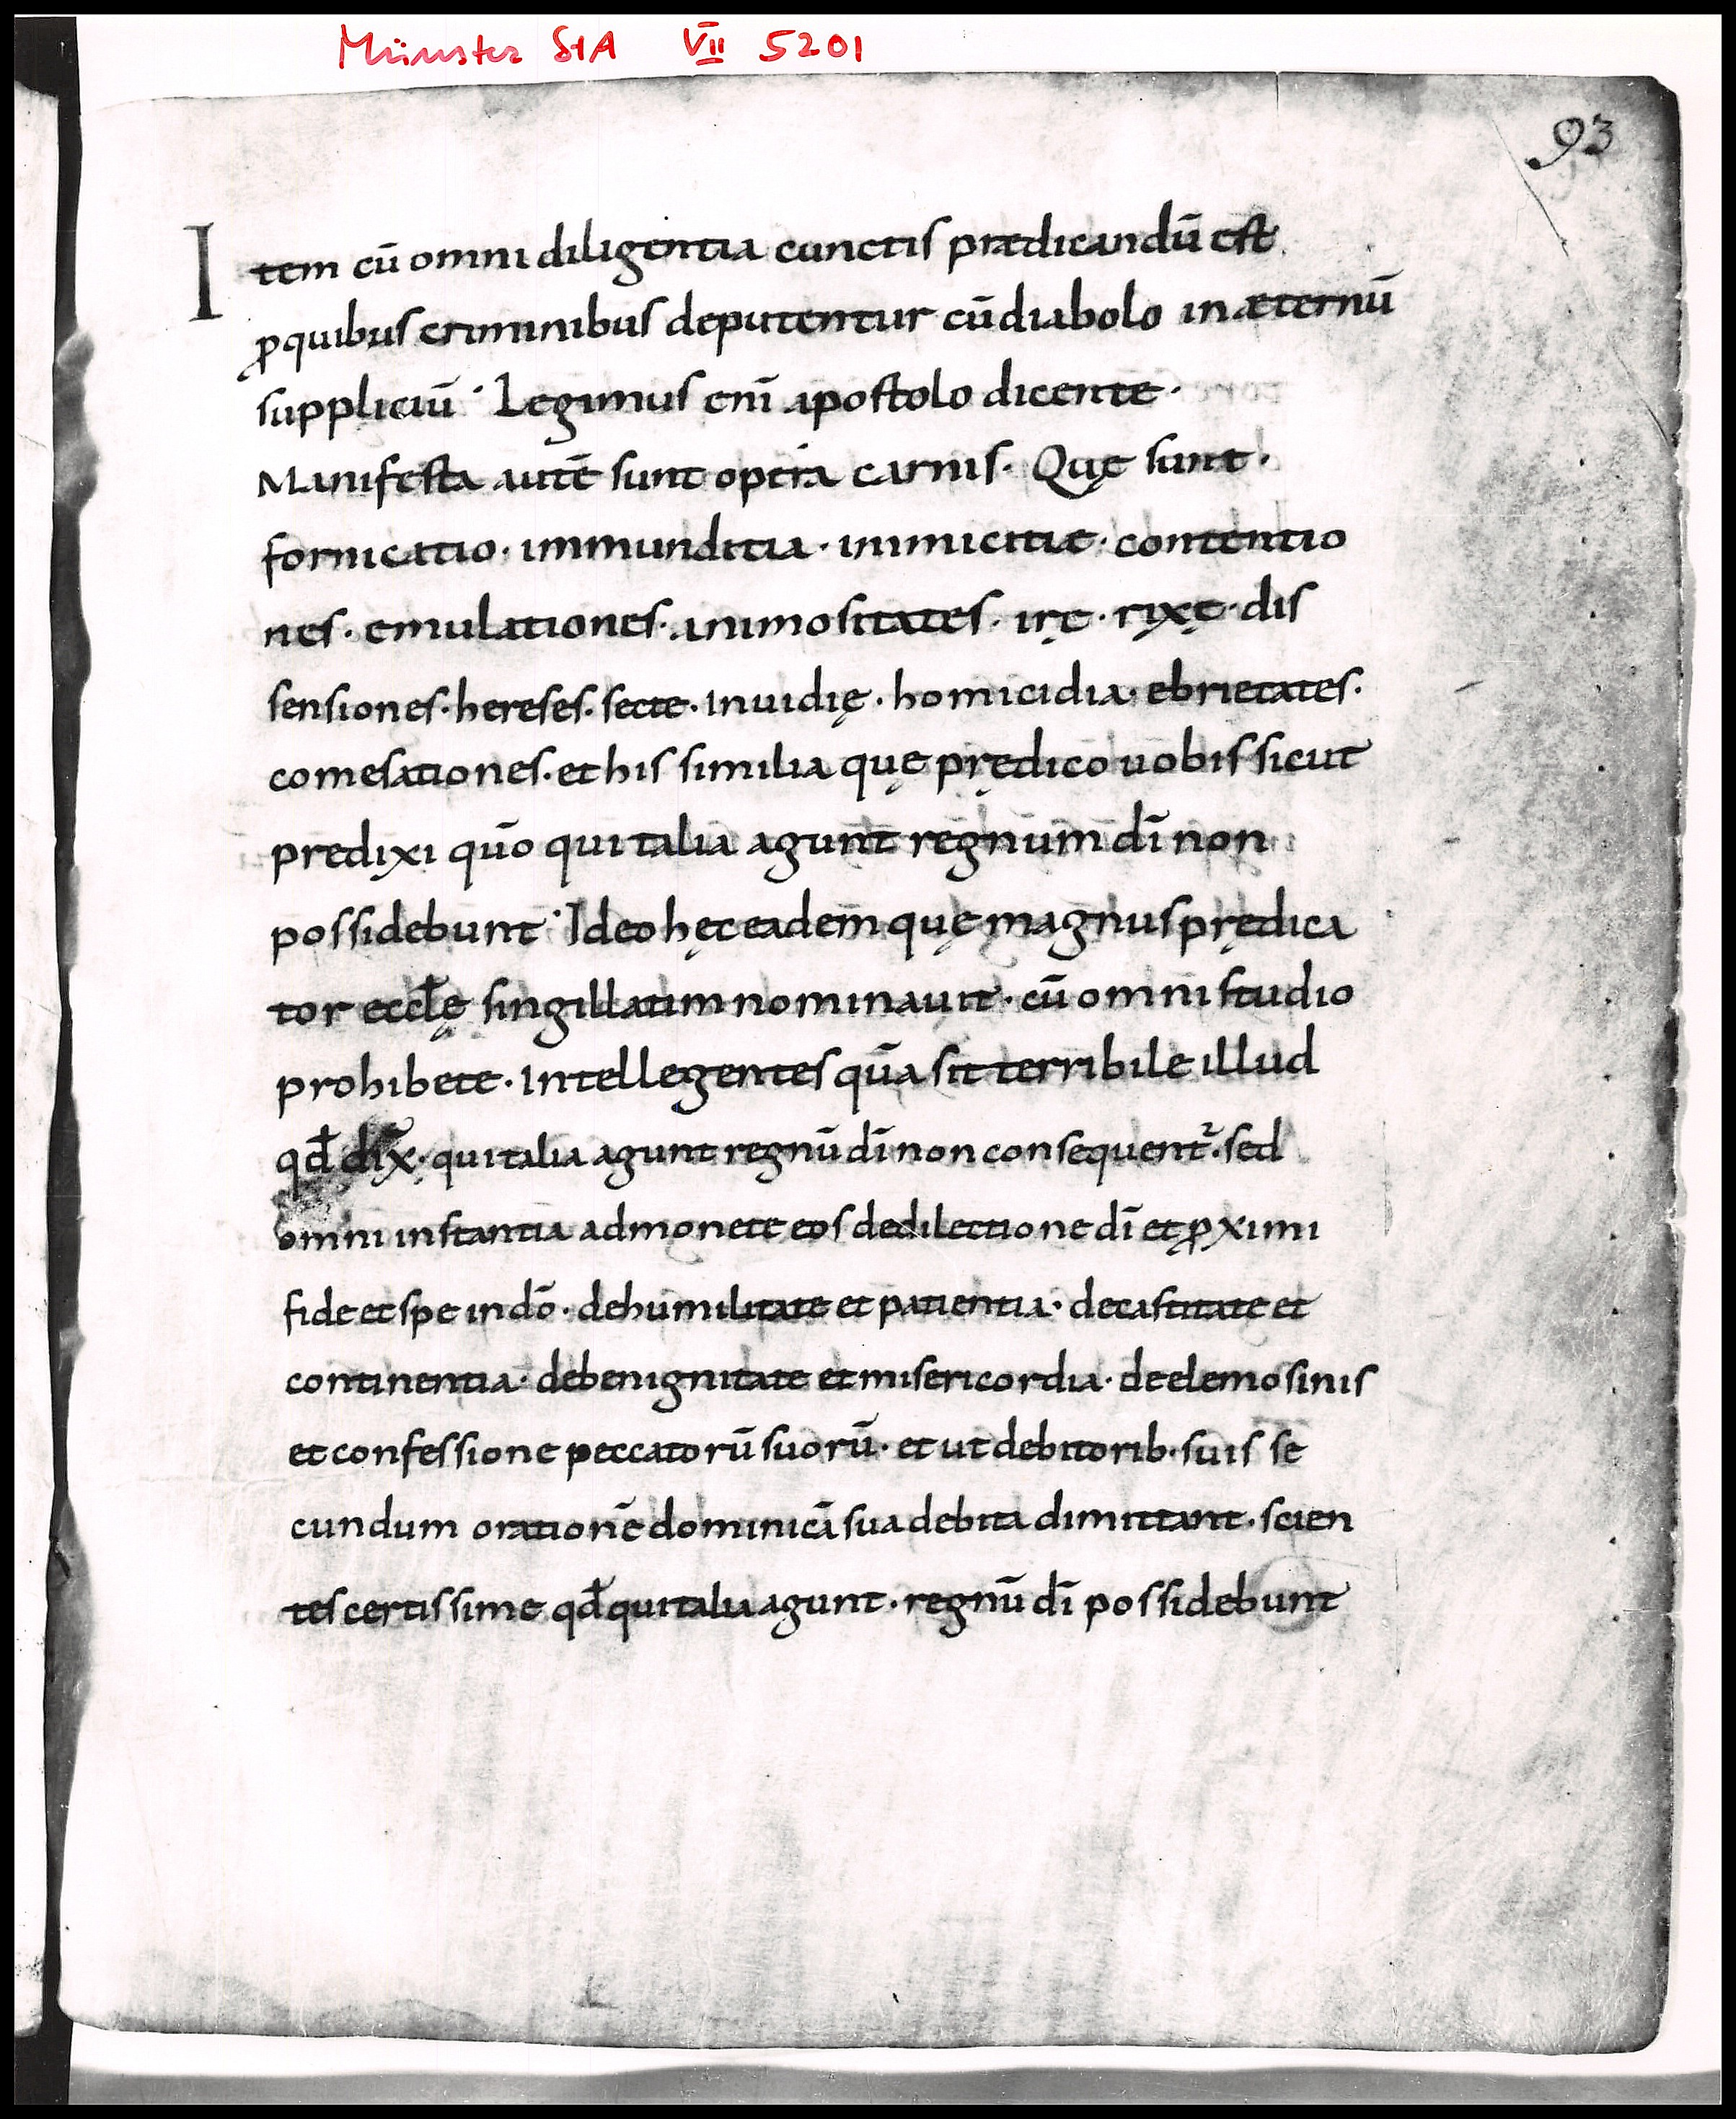 Münster StA VII 5201
93
Item cū omni diligentia cunctis prædicandū est
ꝓquibus criminibus deputentur cūdiabolo in æternū
suppliciū · Legimus enī apostolo dicente ·
Manifesta autē sunt opera carnis · Quę sunt ·
fornicatio · immunditia · inimicitiæ · contentio
nes · emulationes · animositates · irę · rixę · dis
sensiones · hereses · secte · inuidię · homicidia · ebrietates ·
comesationes · et his similia quę prędico uobis sicut
predixi qūo qui talia agunt regnum dī non
possidebunt · Ideo hęc eadem quę magnus prędica
tor eccłę singillatim nominauit · cū omni studio
prohibete · intellegentes quā sit terribile illud
qđ dix̄ · qui talia agunt regnū dī non consequent᷑ · sed
omni instantia admonete eos dedilectione dī et ꝓximi
fide et spe in dō · dehumilitate et patientia · decastitate et
continentia · debenignitate et misericordia · deelemosinis
et confessione peccatorū suorū · et ut debitorib · suis se
cundum orationē dominicā sua debita dimittant · scien
tes certissime qđ qui talia agunt · regnū dī possidebunt